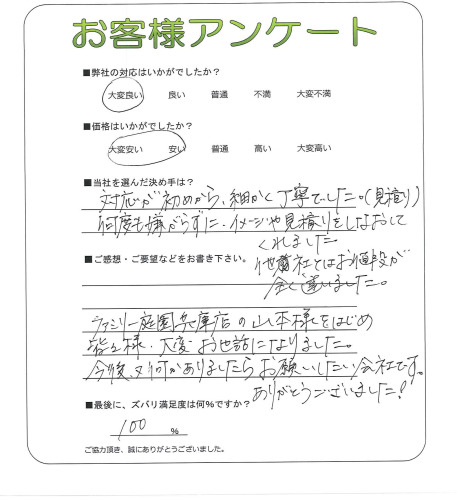 お客様アンケート
■弊社の対応はいかがでしたか？
大変良い 良い 普通 不満 大変不満
■価格はいかがでしたか？
大変安い 安い 普通 高い 大変高い
■当社を選んだ決め手は？
対応が初めから、細かく丁寧でした。（見積り）
何度も嫌がらずに、イメージや見積りをしなおして
くれました
他社とはお値段が
全く違いました。
■ご感想・ご要望などをお書き下さい。
ファミリー庭園兵庫店の山本様をはじめ
皆々様、大変お世話になりました。
今後又何かありましたらお願いしたい会社です。
ありがとうございました！
■最後に、ズバリ満足度は何％ですか？
100 %
ご協力頂き、誠にありがとうございました。